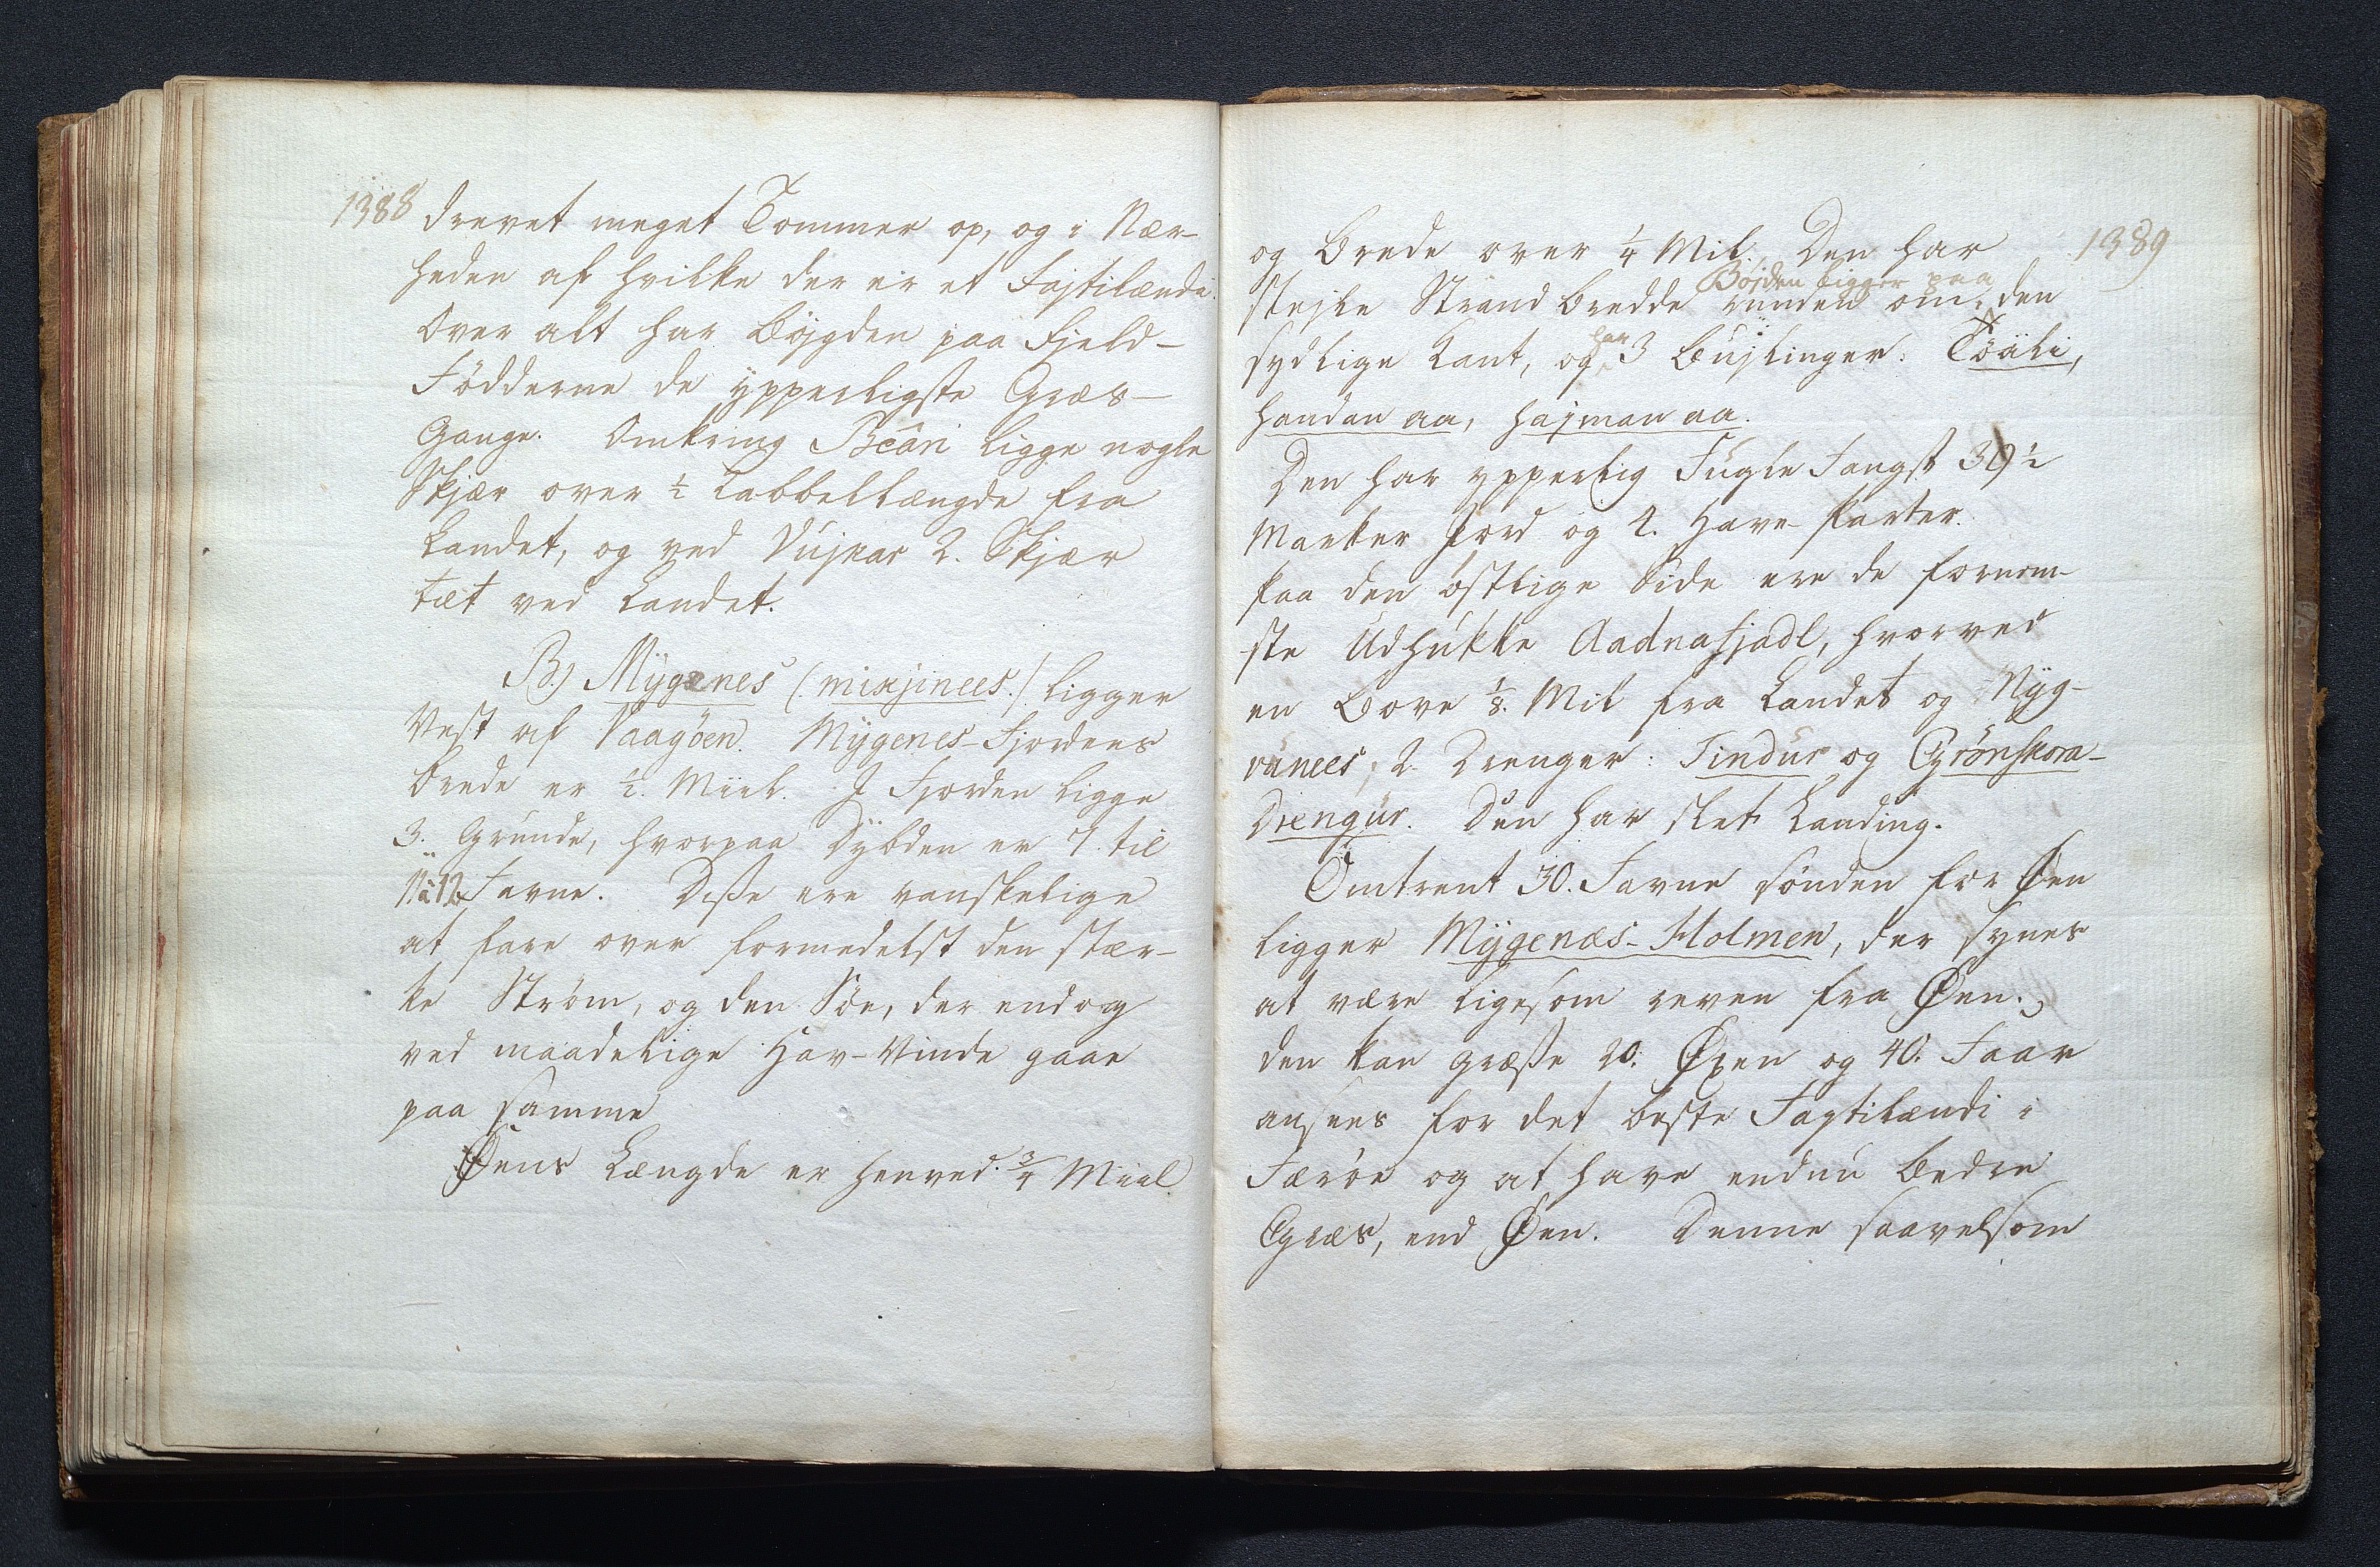 1388
drevet meget Tømmer op, og i Nær-
heden af hvilke der er et Fajtilændi.
Over alt har Böjgden paa Fjeld-
Födderne de ypperligste Græs-
Gange. Omkring Beâri ligge nogle
Skjær over ½ Kabbellængde fra
Landet, og ved Vujkar 2. Skjær
tæt ved Landet.
B.) Mÿgenes (mikjinees.) ligger
Vest af Vaagöen. Mÿgenes-Fjordens
brede er ½. Miil. I Fjorden ligge
3. Grunde, hvorpaa Dÿbden er 7. til
11 à 12 Favne. Disse ere vanskelige
at fare over formedelst den stær-
ke Ström, og den Söe, der endog
ved maadelige Hav-Vinde gaae
paa samme
Øens Længde er henved ¾ Miil
1389
og brede over ¼ Mil. Den har
Böjden ligger paa
stejle Strand bredde runden om, den
har
sydlige Kant, og 3 Bujlinger: Töäli,
handan aa, hajman aa.
Den har ypperlig Fugle Fangst 39½
Marker Jord og 2. Have Parter.
Paa den östlige Side ere de fornem-
ste Udhukke Aadnafjadl, hvorved
en Bove ⅛. Mil fra Landet og Nÿg-
vunees, 2. Drenger: Tindur og Grönskora-
Drengur. Den har slet Landing.
Omtrent 30. Favne sönden for Øen
ligger Mÿgenæs-Holmen, der synes
at være ligesom reven fra Øen.,
den kan græsse 20. Øxen og 40. Faar
ansees for det beste Fajtilændi i
Færöe og at have endnu bedre
Græs, end Øen. Denne saavelsom